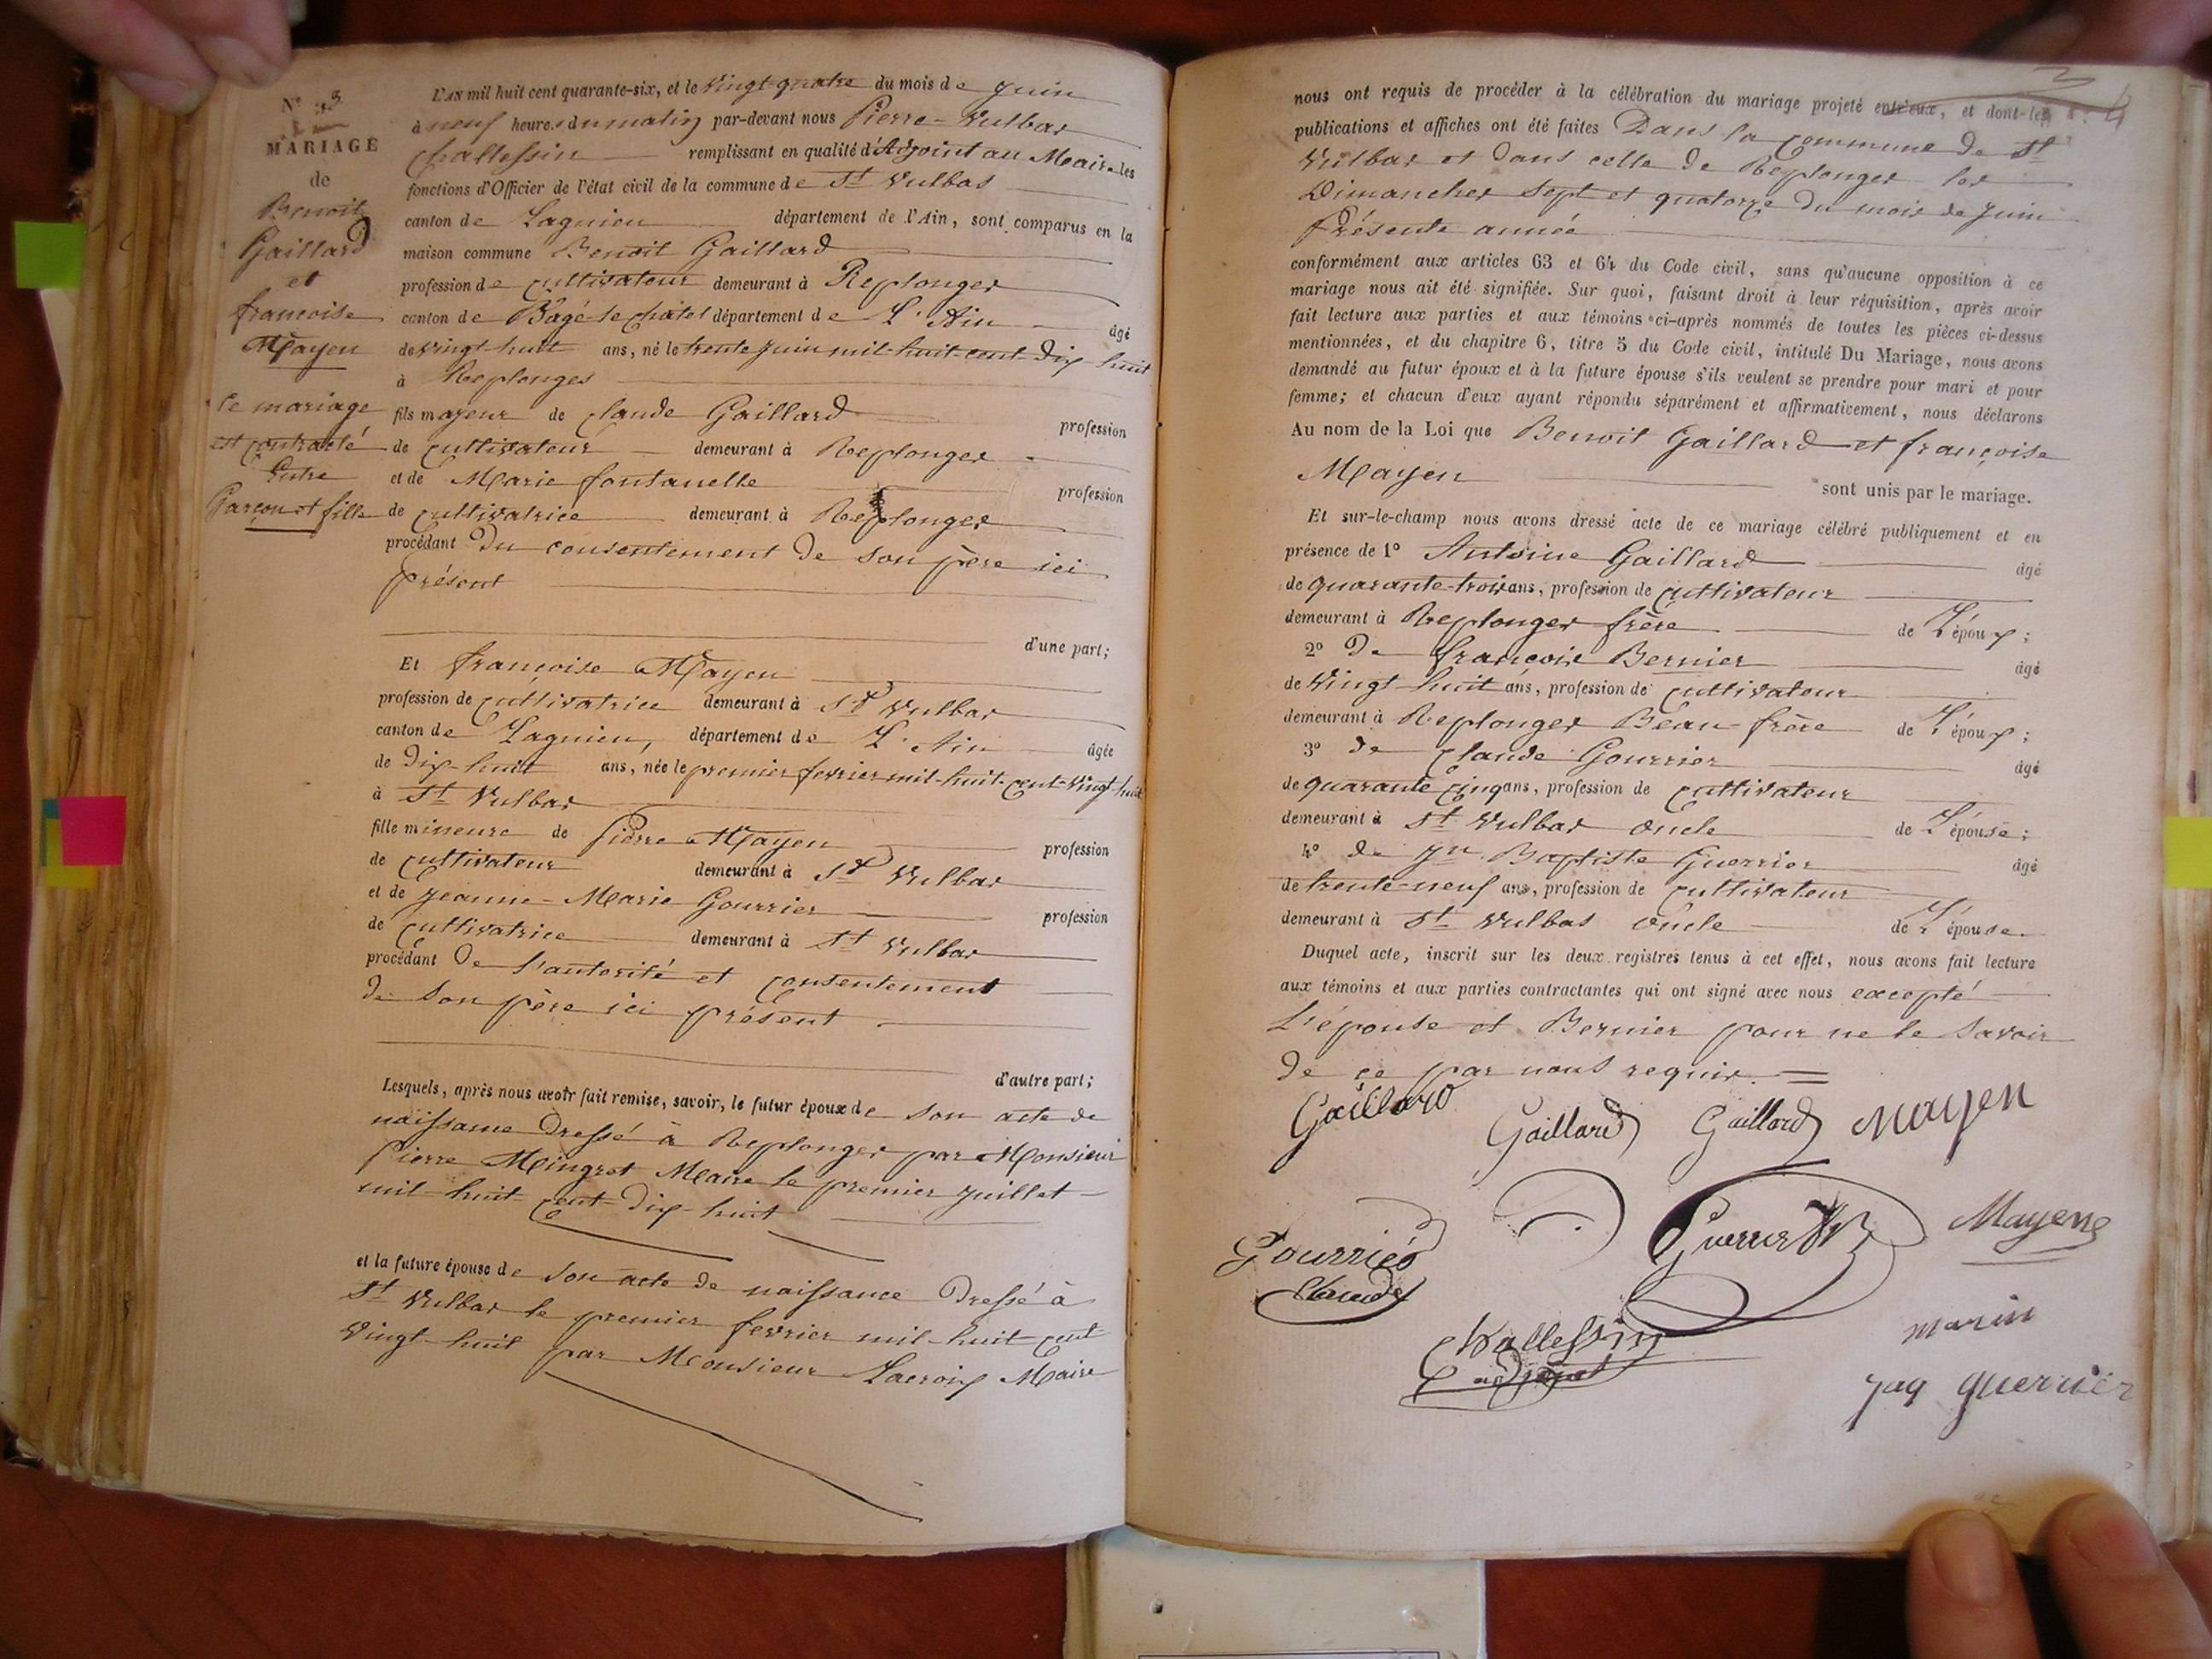 N° 3
MARIAGE
de
Benoit
Gaillard
et
françoise
Mayen
le mariage
est contracté
Entre
Garçon et fille
L'AN mil huit cent quarante-six, et le Vingt quatre du mois de Juin
à neuf heures du matin par-devant nous Pierre-Vulbas
Challessin remplissant en qualité d'Adjoint au Maire les
fonctions d'Officier de l'état civil de la commune de St Vulbas
canton de Lagnieu département de l'Ain, sont comparus en la
maison commune Benoit Gaillard
profession de cultivateur demeurant à Replonges
canton de Bâgé-le-châtel département de L'Ain âgé
de vingt-huit ans, né le trente Juin mil-huit-cent-dix-huit
à Replonges
fils majeur de claude Gaillard profession
de cultivateur demeurant à Replonges
et de Marie fontanelle profession
de cultivatrice demeurant à Replonges
procédant du consentement de son père ici
présent
d'une part;
Et françoise Mayen
profession de cultivatrice demeurant à St Vulbas
canton de Lagnieu, département de L'Ain âgée
de Dix-huit ans, née le premier fevrier mil-huit-cent-vingt-huit
à St Vulbas
fille mineure de Pierre Mayen profession
de cultivateur demeurant à St Vulbas
et de Jeanne-Marie Gourrier profession
de cultivatrice demeurant à St Vulbas
procédant De l'autorité et consentement
de son père ici présent
d'autre part;
Lesquels, après nous avoir fait remise, savoir, le futur époux de son acte de
naissance Dressé à Replonges par Monsieur
Pierre Mingret Maire le premier Juillet
mil-huit-cent-dix-huit
et la future épouse de son acte de naissance Dressé à
St Vulbas le premier fevrier mil-huit cent-
vingt-huit par Monsieur Lacroix Maire
nous ont requis de procéder à la célébration du mariage projeté entr'eux, et dont les
publications et affiches ont été faites Dans la commune de St
Vulbas et dans celle de Replonges les
Dimanches sept et quatorze du mois de Juin
Présente année
conformément aux articles 63 et 64 du Code civil, sans qu'aucune opposition à ce
mariage nous ait été signifiée. Sur quoi, faisant droit à leur réquisition, après avoir
fait lecture aux parties et aux témoins ci-après nommés de toutes les pièces ci-dessus
mentionnées, et du chapitre 6, titre 5 du Code civil, intitulé Du Mariage, nous avons
demandé au futur époux et à la future épouse s'ils veulent se prendre pour mari et pour
femme; et chacun d'eux ayant répondu séparément et affirmativement, nous déclarons
Au nom de la Loi que Benoit Gaillard et françoise
Mayen sont unis par le mariage.
Et sur-le-champ nous avons dressé acte de ce mariage célébré publiquement et en
présence de 1° Antoine Gaillard âgé
de quarante-trois ans, profession de cultivateur
demeurant à Replonges frère de L'époux;
2° De françois Bernier âgé
de Vingt-huit ans, profession de cultivateur
demeurant à Replonges Beau-frère de L'époux;
3° de Claude Gourrier âgé
de quarante cinq ans, profession de cultivateur
demeurant à St Vulbas oncle de L'épouse;
4° de Jn Baptiste Guerrier âgé
de trente-neuf ans, profession de cultivateur
demeurant à St Vulbas oncle de L'épouse.
Duquel acte, inscrit sur les deux registres tenus à cet effet, nous avons fait lecture
aux témoins et aux parties contractantes qui ont signé avec nous excepté
L'épouse et Bernier pour ne le savoir
de ce par nous requis.
Gaillard Gaillard Gaillard Mayen
Gourrier Guerrier Mayene
Claude
Challessin marin
adjoint Jaq guerrier